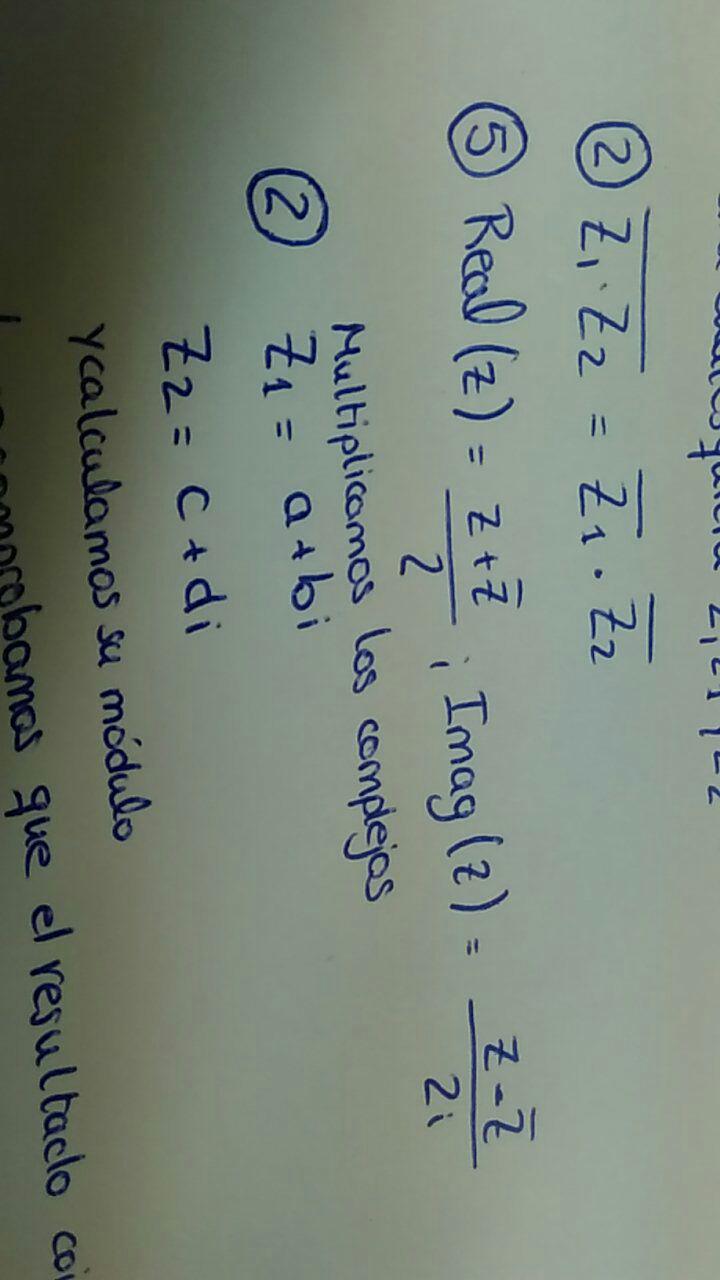 ② \overline{Z_1 \cdot Z_2} = \overline{Z_1} \cdot \overline{Z_2}
⑤ Real (z) = \frac{z + \bar{z}}{2} ; Imag (z) = \frac{z - \bar{z}}{2i}
Multiplicamos los complejos
② Z_1 = a + bi
Z_2 = c + di
Y calculamos su módulo
comprobamos que el resultado